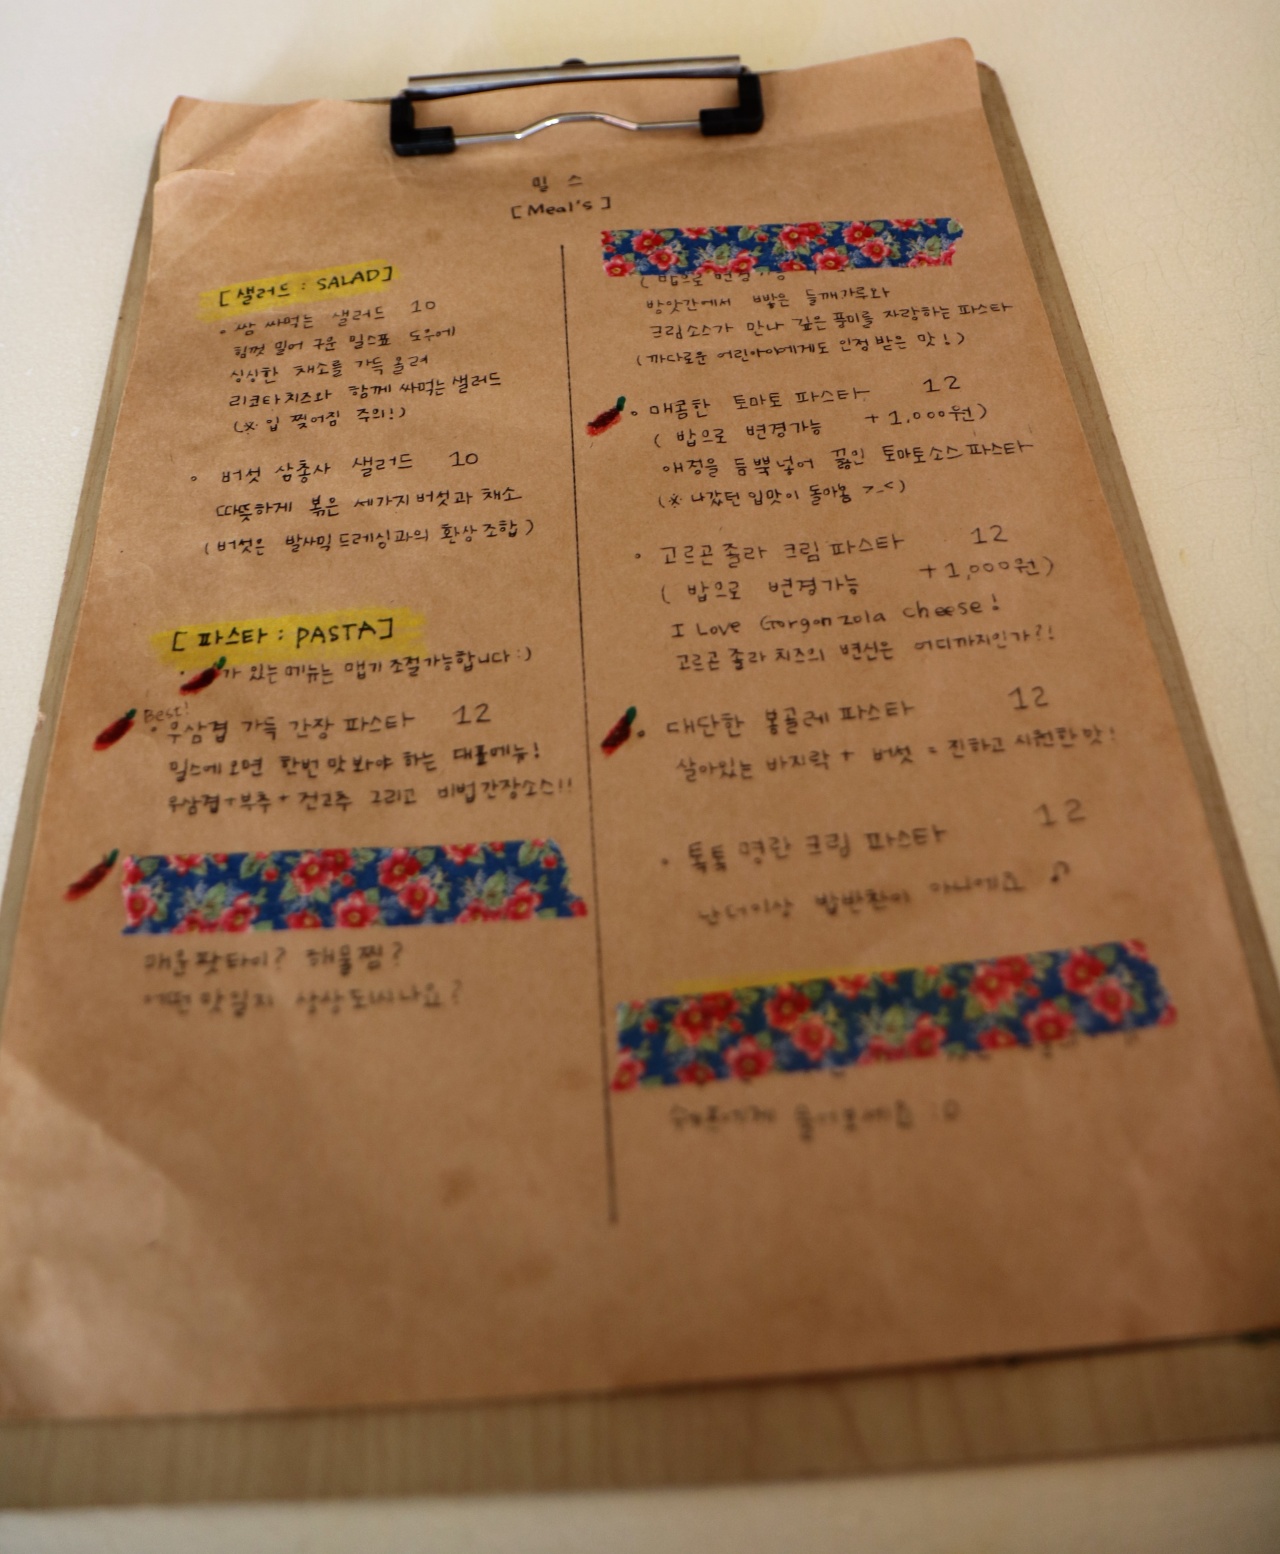 밀스
[Meal's]
[샐러드 : SALAD]
쌈 싸먹는 샐러드 10
힘껏 밀어 구운 밀스표 도우에
싱싱한 채소를 가득 올려
리코타치즈와 함께 싸먹는 샐러드
(※ 입 찢어짐 주의!)
버섯 삼총사 샐러드 10
따뜻하게 볶은 세가지버섯과 채소
(버섯은 발사믹드레싱과의 환상조합)
[파스타 : PASTA]
가 있는 메뉴는 맵기 조절가능합니다 :)
Best!
우삼겹 가득 간장 파스타 12
밀스에 오면 한번 맛봐야 하는 대표메뉴!
우삼겹+부추+건고추 그리고 비법간장소스!!
매운팟타이? 해물찜?
어떤 맛일지 상상되시나요?
(밥으로 변경가능
방앗간에서 빻은 들깨가루와
크림소스가 만나 깊은 풍미를 자랑하는 파스타
(까다로운 어린아이에게도 인정 받은 맛!)
매콤한 토마토 파스타 12
(밥으로 변경가능 +1,000원)
애정을 듬뿍넣어 끓인 토마토소스파스타
(※ 나갔던 입맛이 돌아옴 >_<)
고르곤졸라 크림파스타 12
(밥으로 변경가능 +1,000원)
I Love Gorgonzola cheese!
고르곤졸라치즈의 변신은 어디까지인가?!
대단한 봉골레파스타 12
살아있는 바지락 + 버섯 = 진하고 시원한맛!
톡톡 명란 크림 파스타 12
난 더이상 밥반찬이 아니에요 ♪
물어보세요 :D